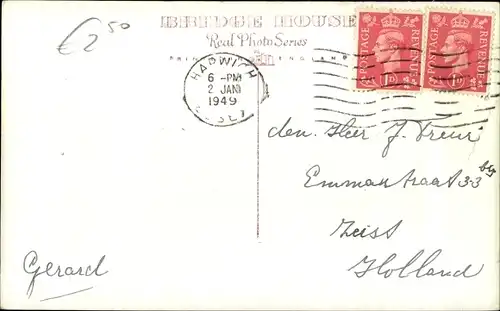 €2,50
BRIDGE HOUSE
Real Photo Series
ENGLAND
POSTAGE REVENUE
1D
POSTAGE REVENUE
1D
HARWICH
6 - PM
2 JAN
1949
den Heer J. Treur
Emmastraat 33 bis
Zeist
Holland
Gerard